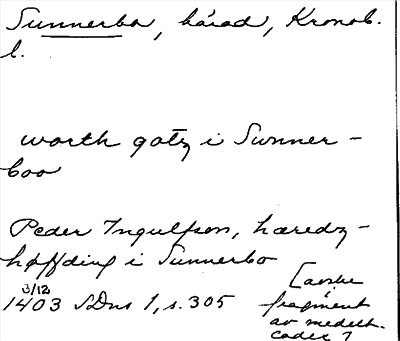 Sunnerbo, härad, Kronob.
l.
worth gotz i Sunner-
boo
Peder Ingulfson, hæredz-
høffding i Sunnerbo
3/12
1403 SDns 1, s. 305
fragment
av medelt.
codex ?